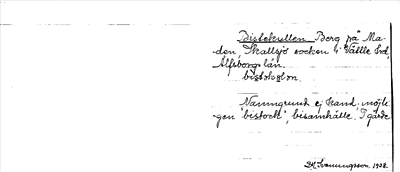 Bistokullen Berg på Ma-
den, Skallsjö socken i Vättle hd,
Älfsborgs län.
bistokolon.
Namngrund ej känd, möjli-
gen "bistock", bisamhälle. I gärde
D. H. Svenungsson 1928.